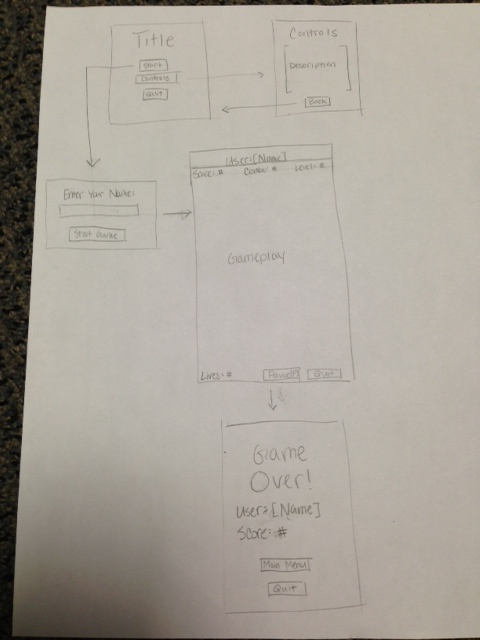 Title
Start
Controls
Quit
Controls
Description
Back
Enter Your Name:
Start Game
User:[Name]
Score:#
Combo: #
Level:#
Gameplay
Lives:#
Pause
Quit
Game
Over!
User:[Name]
Score:#
Main Menu
Quit